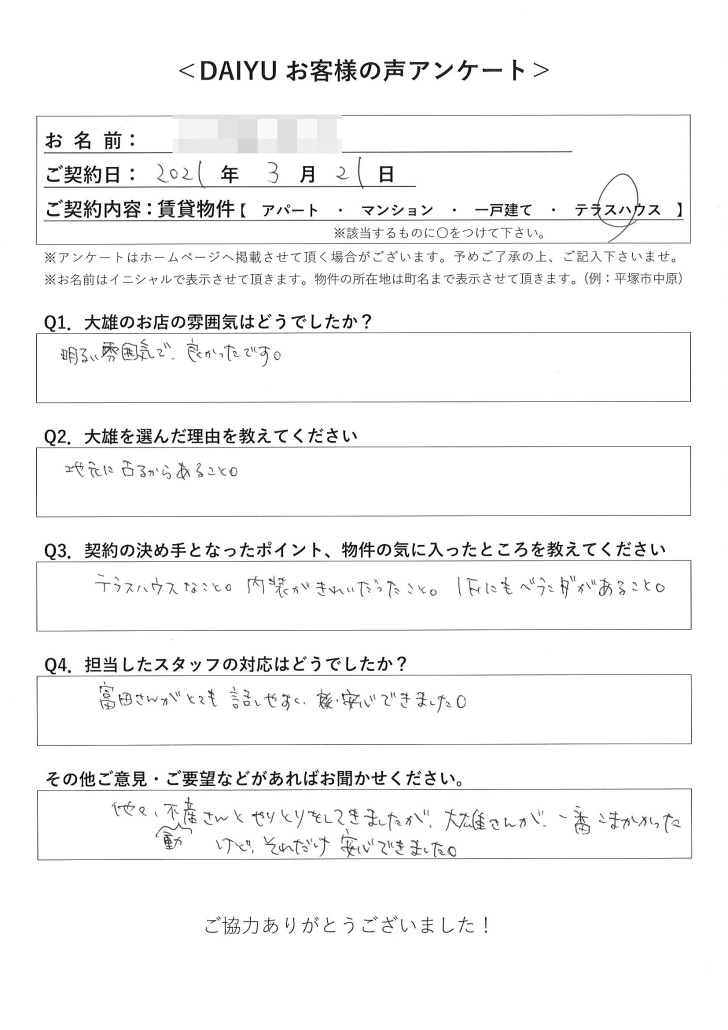 ＜DAIYU お客様の声アンケート＞
お 名 前：
ご契約日： 2021 年 3 月 21 日
ご契約内容：賃貸物件【 アパート ・ マンション ・ 一戸建て ・ テラスハウス 】
※該当するものに〇をつけて下さい。
※アンケートはホームページへ掲載させて頂く場合がございます。予めご了承の上、ご記入下さいませ。
※お名前はイニシャルで表示させて頂きます。物件の所在地は町名まで表示させて頂きます。（例：平塚市中原）
Q1．大雄のお店の雰囲気はどうでしたか？
明るい雰囲気で、良かったです。
Q2．大雄を選んだ理由を教えてください
地元に古るからあること。
Q3．契約の決め手となったポイント、物件の気に入ったところを教えてください
テラスハウスなこと。内装がきれいだったこと。1Fにもベランダがあること。
Q4．担当したスタッフの対応はどうでしたか？
富田さんがとても話しやすく、安心できました。
その他ご意見・ご要望などがあればお聞かせください。
他々、不動産さんとやりとりをしてきましたが、大雄さんが、一番こまかかった
けど、それだけ安心できました。
ご協力ありがとうございました！